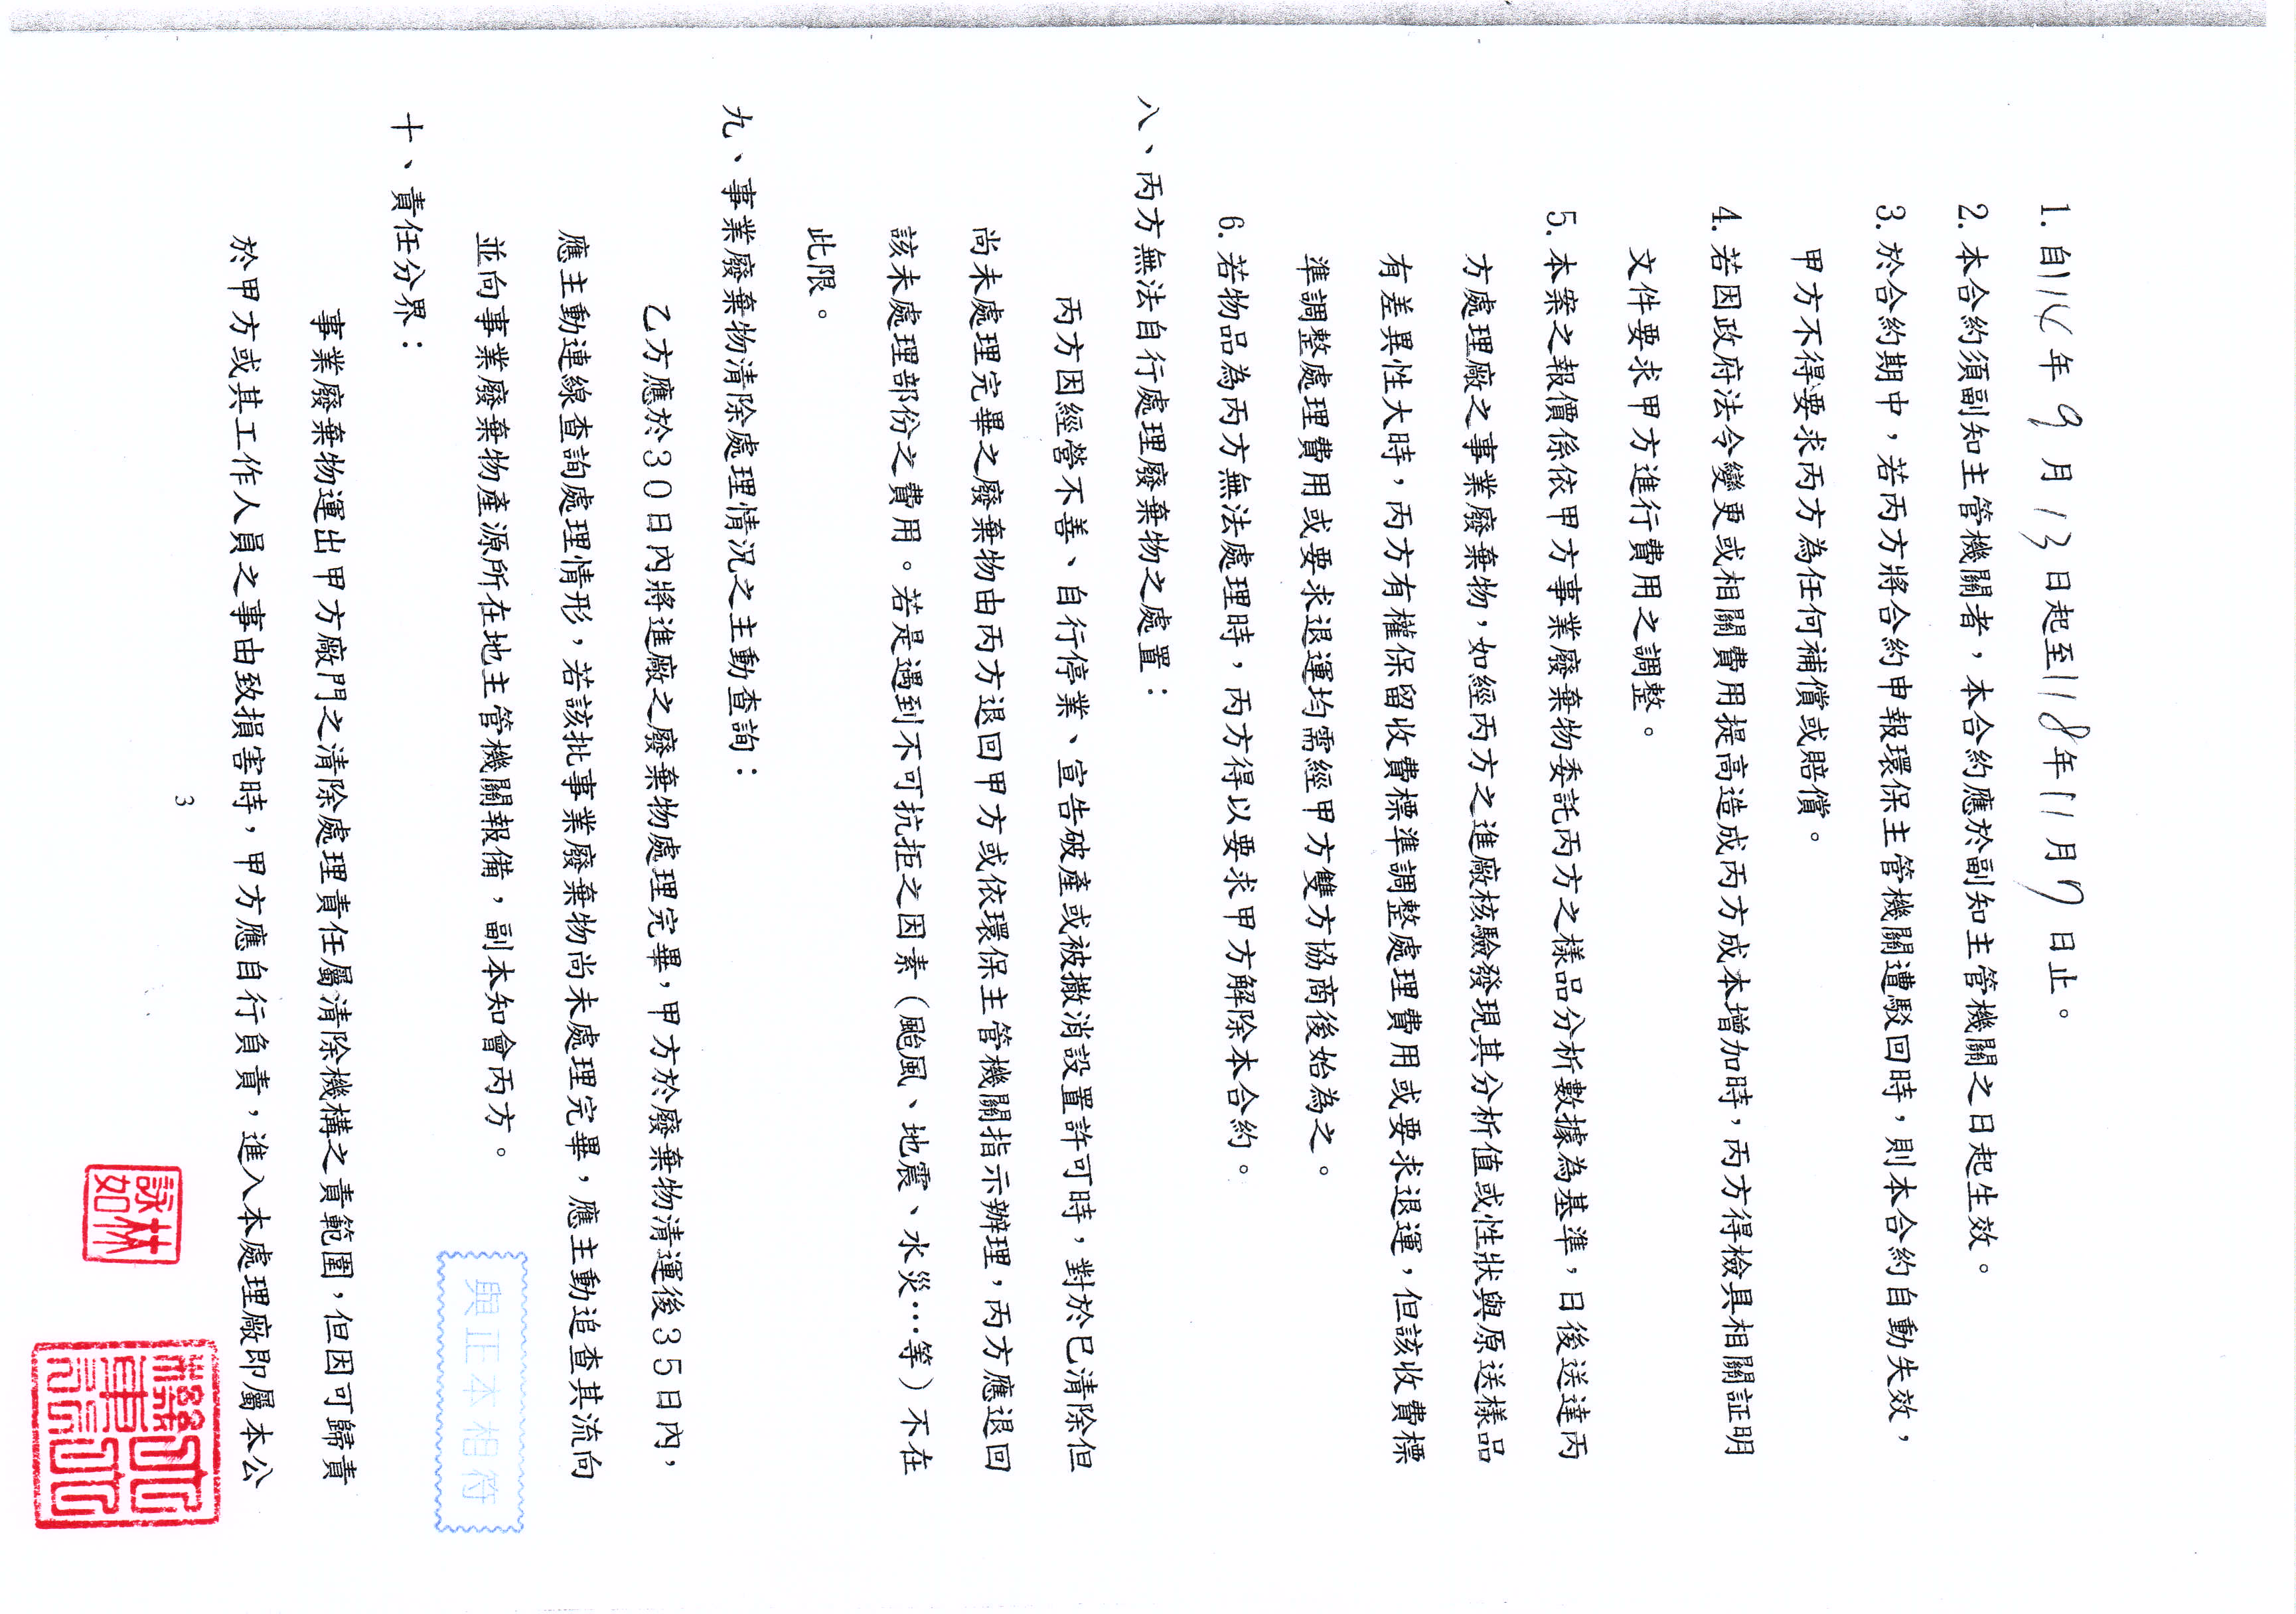 1. 自114年9月13日起至118年11月7日止。
2. 本合約須副知主管機關者，本合約應於副知主管機關之日起生效。
3. 於合約期中，若丙方將合約申報環保主管機關遭駁回時，則本合約自動失效，
甲方不得要求丙方為任何補償或賠償。
4. 若因政府法令變更或相關費用提高造成丙方成本增加時，丙方得檢具相關証明
文件要求甲方進行費用之調整。
5. 本案之報價係依甲方事業廢棄物委託丙方之樣品分析數據為基準，日後送達丙
方處理廠之事業廢棄物，如經丙方之進廠核驗發現其分析值或性狀與原送樣品
有差異性大時，丙方有權保留收費標準調整處理費用或要求退運，但該收費標
準調整處理費用或要求退運均需經甲方雙方協商後始為之。
6. 若物品為丙方無法處理時，丙方得以要求甲方解除本合約。
八、丙方無法自行處理廢棄物之處置：
丙方因經營不善、自行停業、宣告破產或被撤消設置許可時，對於已清除但
尚未處理完畢之廢棄物由丙方退回甲方或依環保主管機關指示辦理，丙方應退回
該未處理部份之費用。若是遇到不可抗拒之因素（颱風、地震、水災…等）不在
此限。
九、事業廢棄物清除處理情況之主動查詢：
乙方應於30日內將進廠之廢棄物處理完畢，甲方於廢棄物清運後35日內，
應主動連線查詢處理情形，若該批事業廢棄物尚未處理完畢，應主動追查其流向
並向事業廢棄物產源所在地主管機關報備，副本知會丙方。
十、責任分界：
事業廢棄物運出甲方廠門之清除處理責任屬清除機構之責範圍，但因可歸責
於甲方或其工作人員之事由致損害時，甲方應自行負責，進入本處理廠即屬本公
3
與正本相符
林詠如